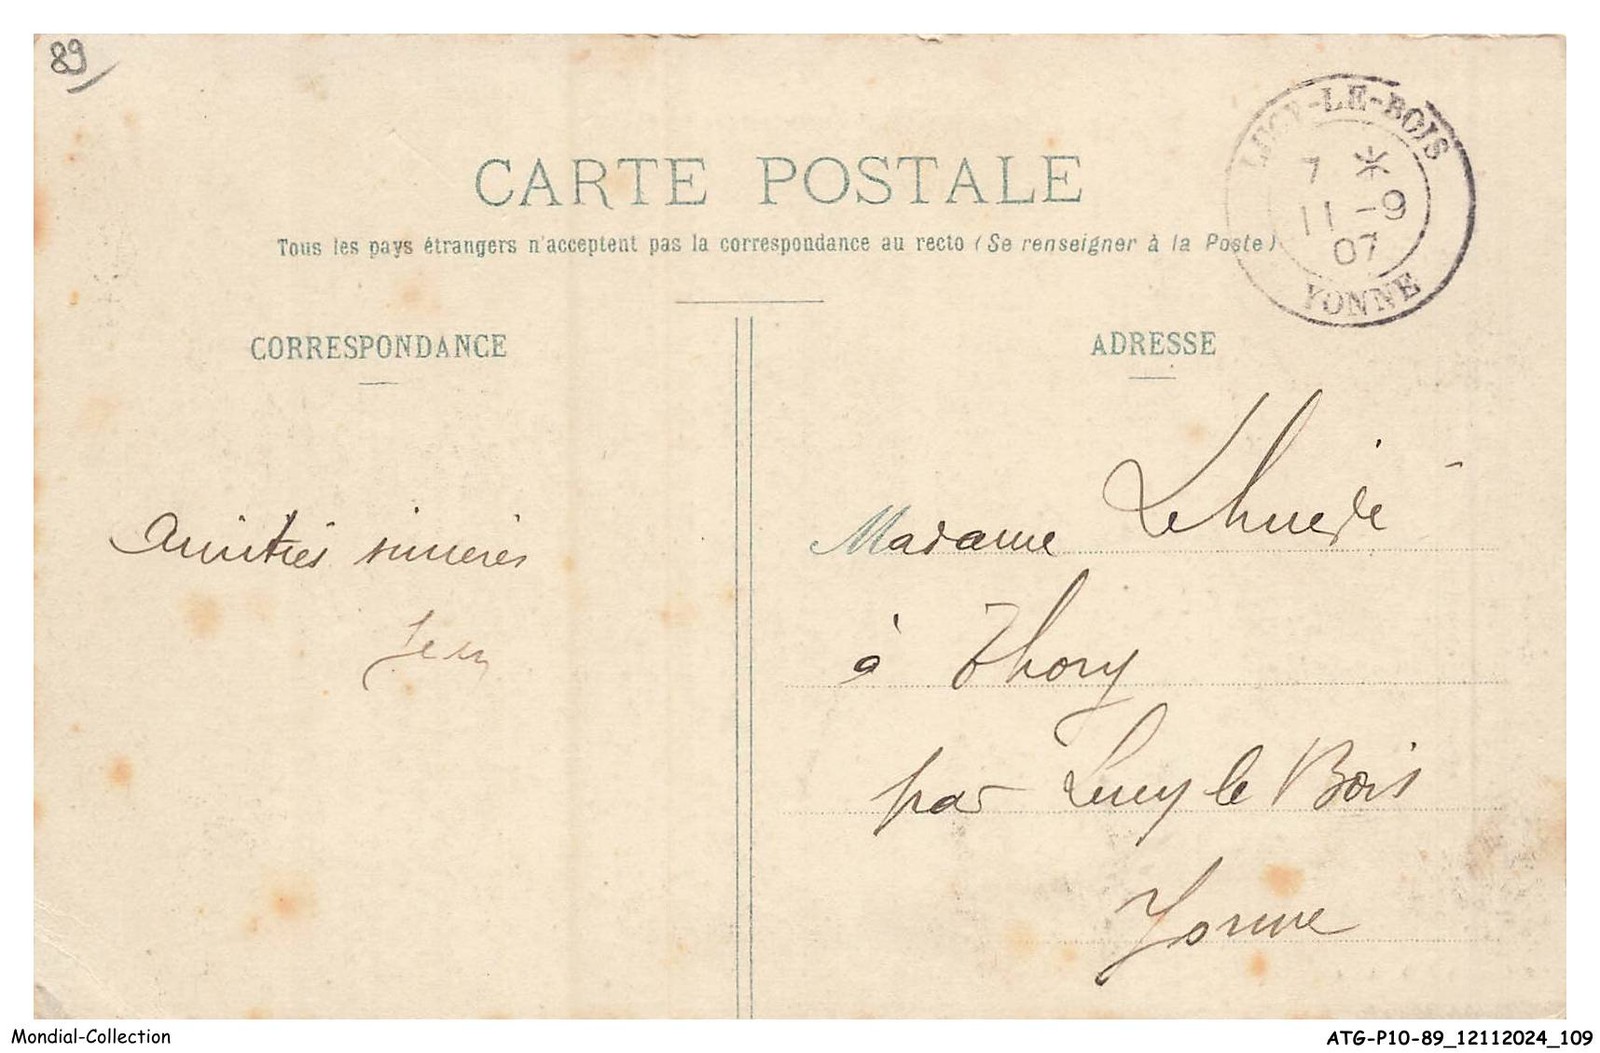 89
CARTE POSTALE
Tous les pays étrangers n'acceptent pas la correspondance au recto (Se renseigner à la Poste)
LUCY-LE-BOIS
7 *
11 -9
07
YONNE
CORRESPONDANCE
ADRESSE
Amitiés sincères
Jean
Madame
à Thory
par Lucy le Bois
Yonne
Mondial-Collection
ATG-P10-89_12112024_109